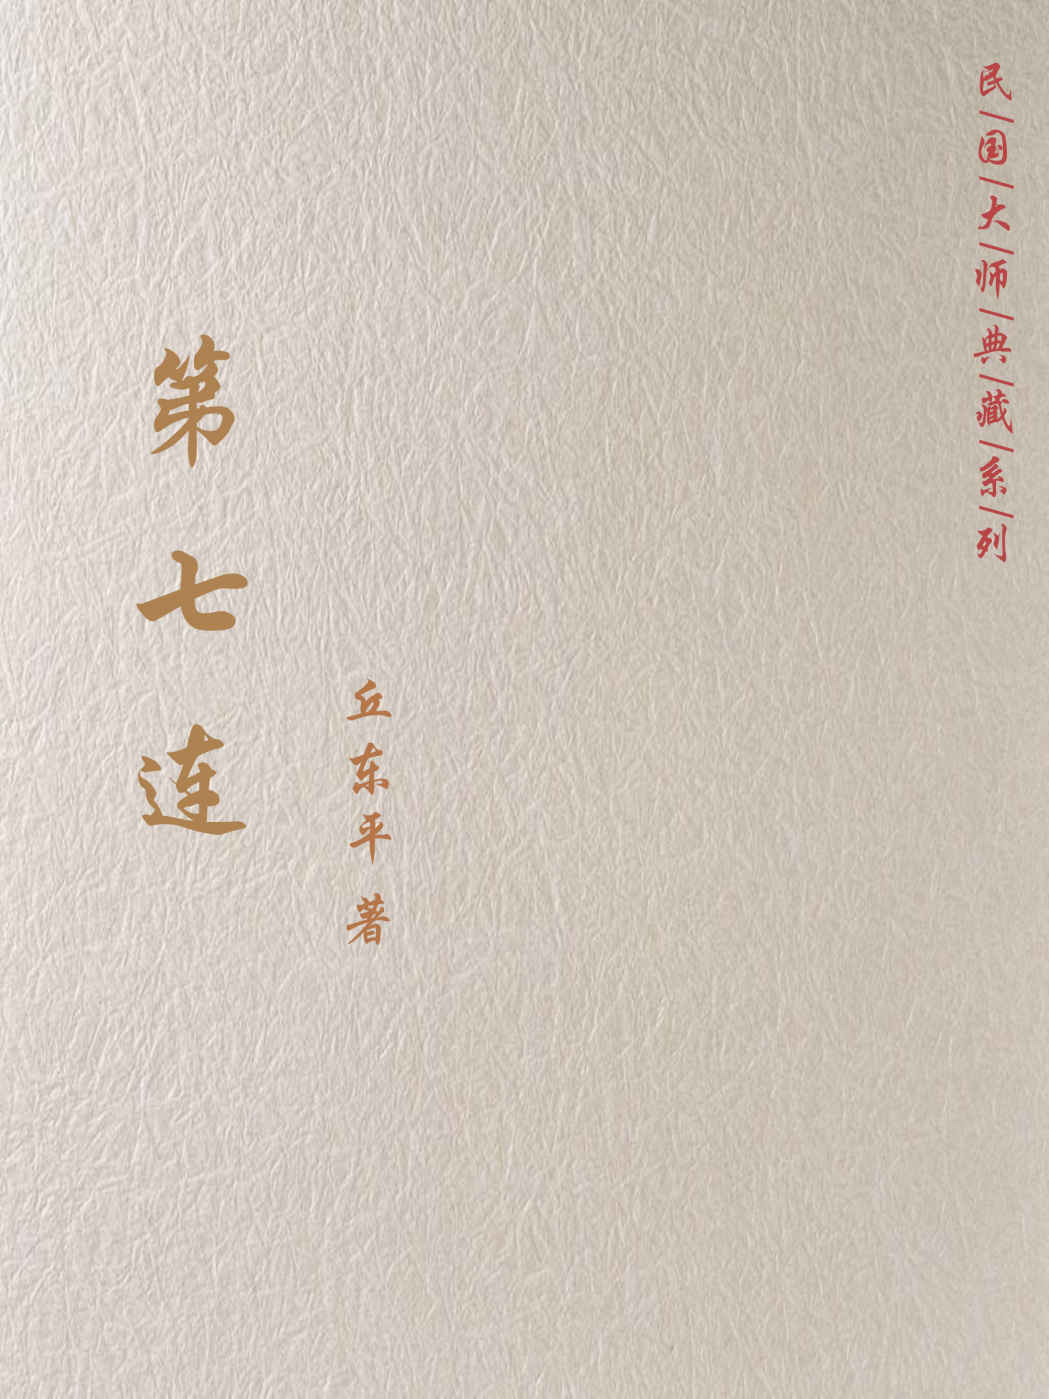 民/国/大/师/典/藏/系/列
第七连
丘东平 著